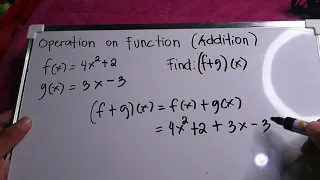 Operation on Function (Addition)
f(x) = 4x²+2 Find: (f+g)(x)
g(x) = 3x-3
(f+g)(x) = f(x)+g(x)
= 4x²+2+3x-3